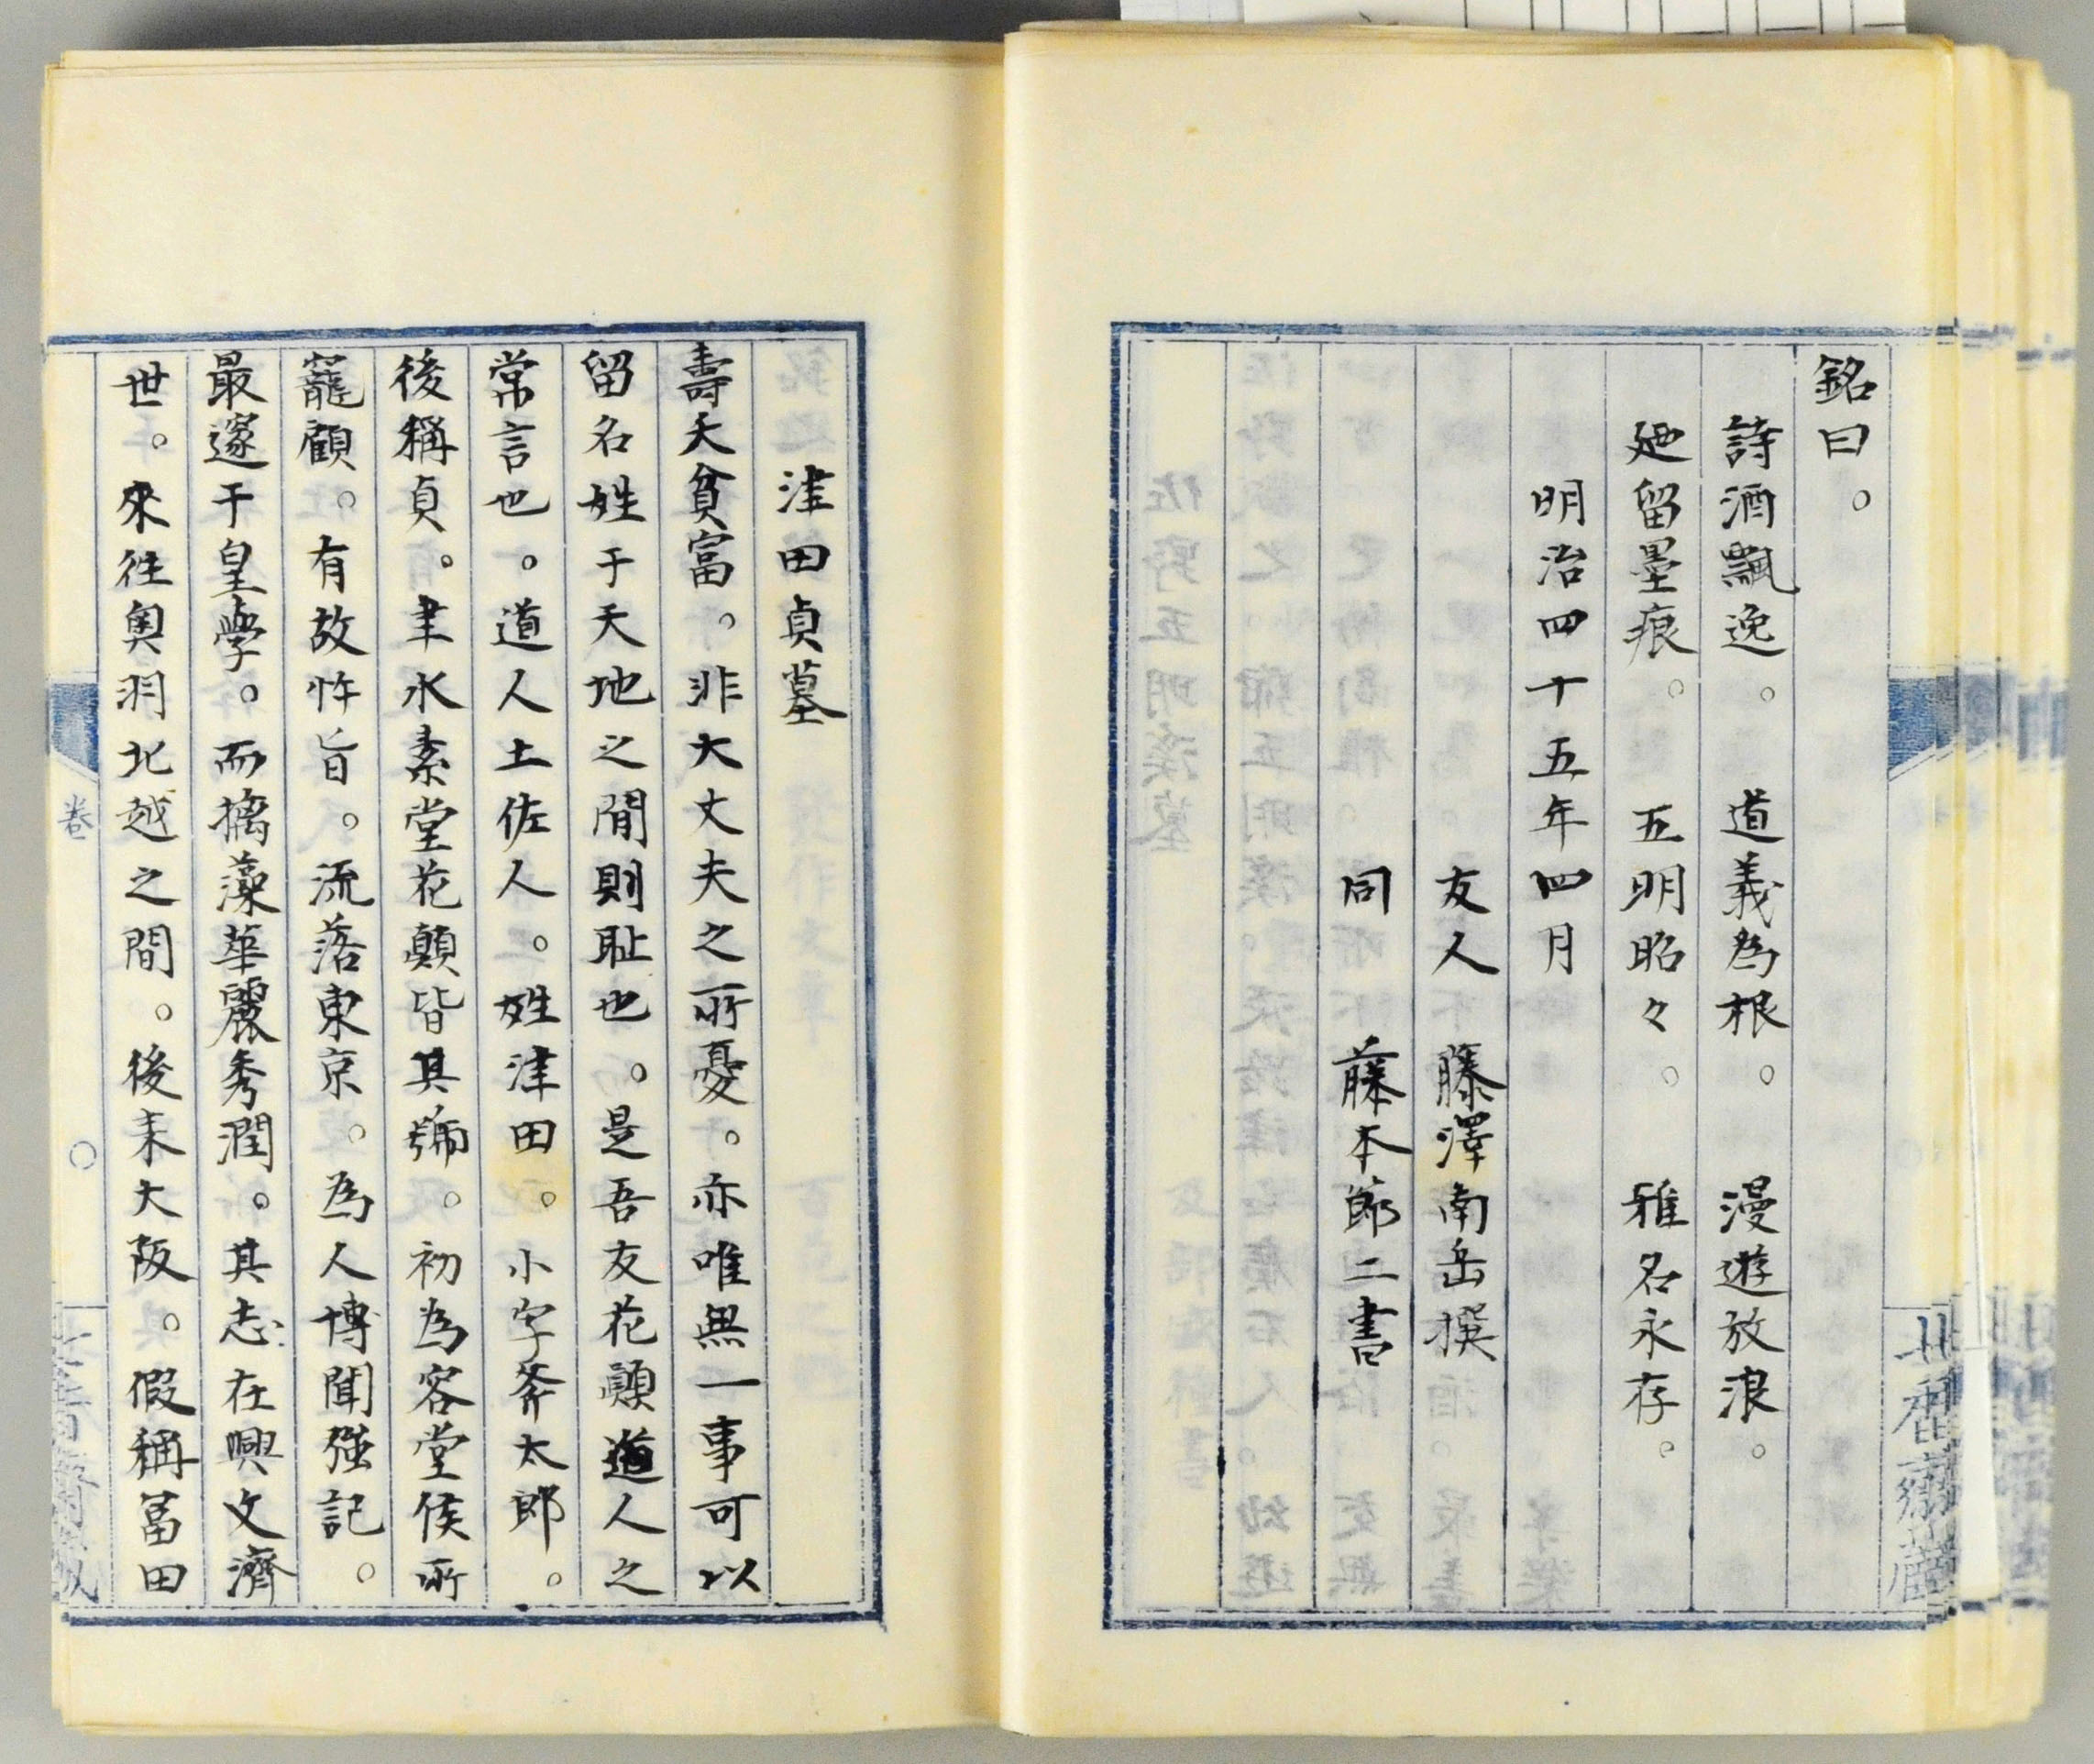 銘曰。
詩酒飄逸。道義為根。漫遊放浪。
廼留墨痕。五明昭々。雅名永存。
明治四十五年四月
友人 藤澤南岳撰
同 藤本節二書
津田貞墓
壽夭貧富。非大丈夫之所憂。亦唯無一事可以
留名姓于天地之間則耻也。是吾友花顛道人之
常言也。道人土佐人。姓津田。小字斧太郎。
後稱貞。聿水素堂花顛皆其號。初為容堂侯所
寵顧。有故忤旨。流落東京。為人博聞强記。
最邃于皇學。而摛藻華麗秀潤。其志在興文濟
世。來往奥羽北越之間。後来大阪。假稱冨田
卷